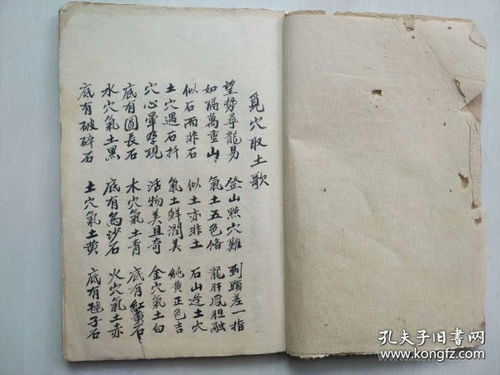 覓穴取土歌
望勢尋龍易 登山點穴難 到頭差一指
如隔萬重山 氣土五色俻 龍肝鳳胆融
似石而非石 似土亦非土 石山逢土穴
土穴遇石扦 氣土鮮潤美 純黄正色吉
穴心暈現 活物美且奇 金穴氣土白
底有圓長石 木穴氣土青 底有紅黃石
水穴氣土黑 底有烏沙石 火穴氣土赤
底有破碎石 土穴氣土黃 底有子石
孔夫子旧书网
www.kongfz.com